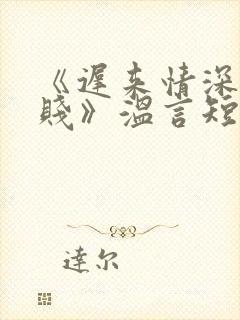 《遲来情深
賤》溫言短
達尔